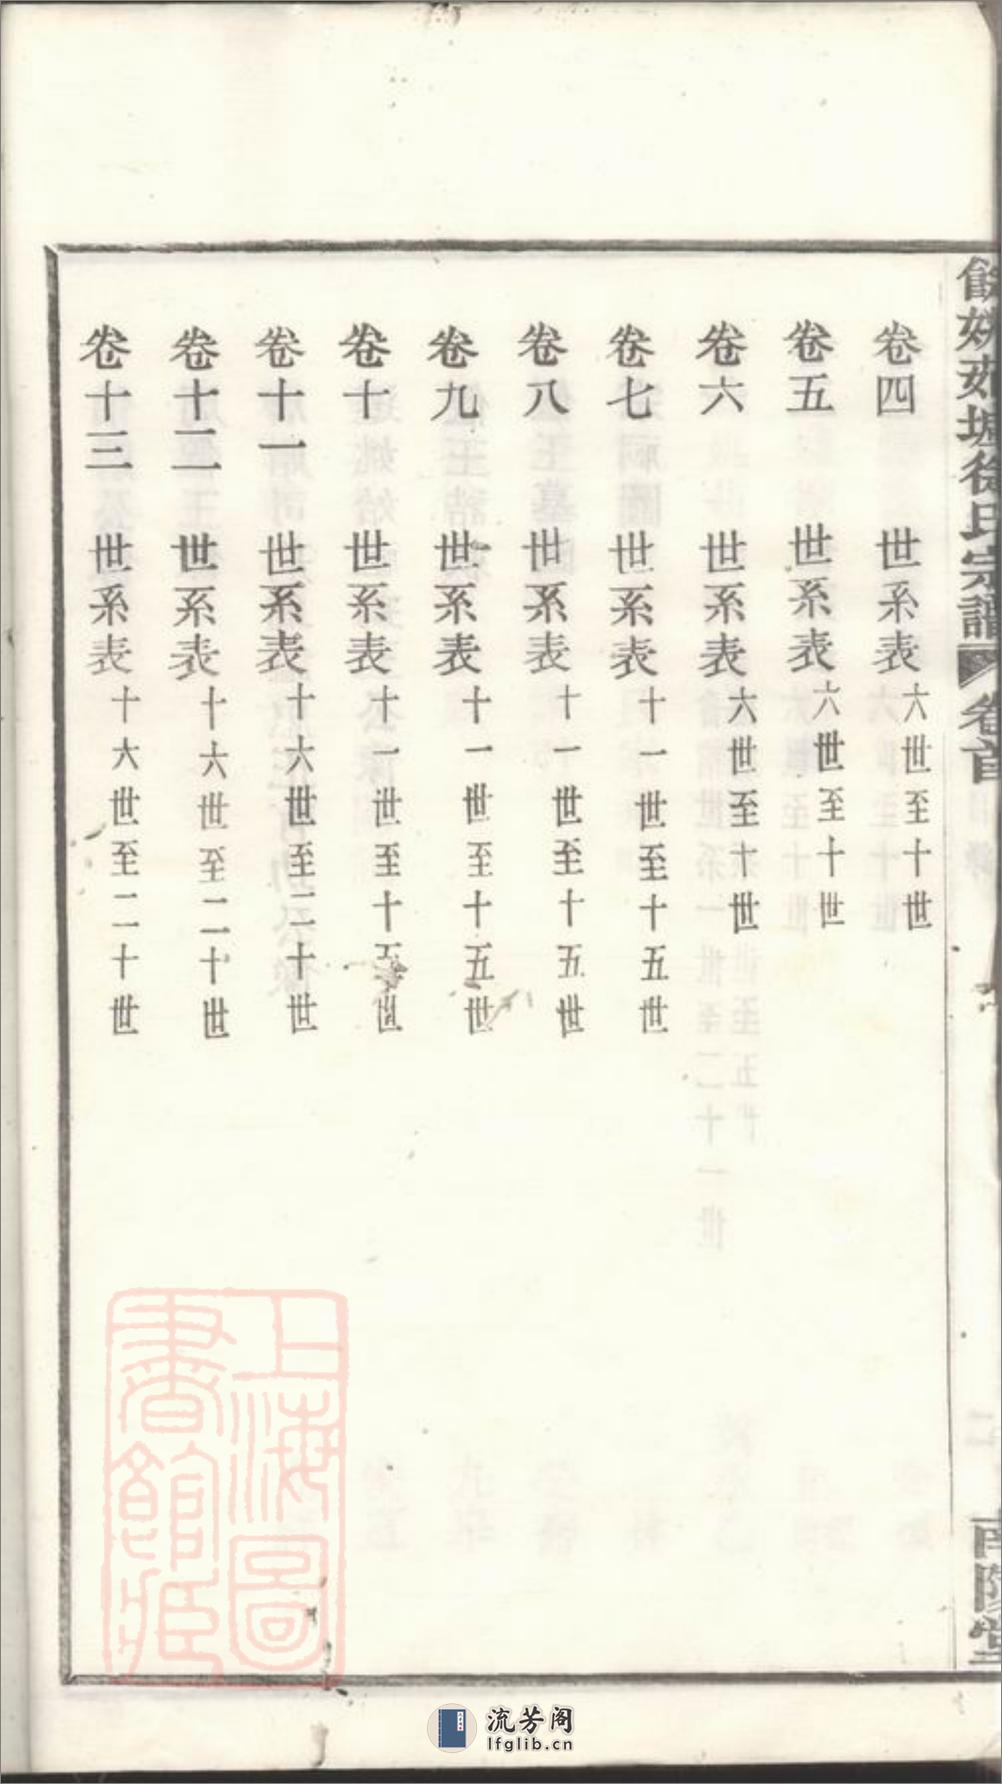 餘姚茹塘徐氏宗譜 卷首 目錄 二 南陔堂
卷四 世系表 六世至十世
卷五 世系表 六世至十世
卷六 世系表 六世至十世
卷七 世系表 十一世至十五世
卷八 世系表 十一世至十五世
卷九 世系表 十一世至十五世
卷十 世系表 十一世至十五世
卷十一 世系表 十六世至二十世
卷十二 世系表 十六世至二十世
卷十三 世系表 十六世至二十世
上海圖書館藏
流芳阁
lfglib.cn